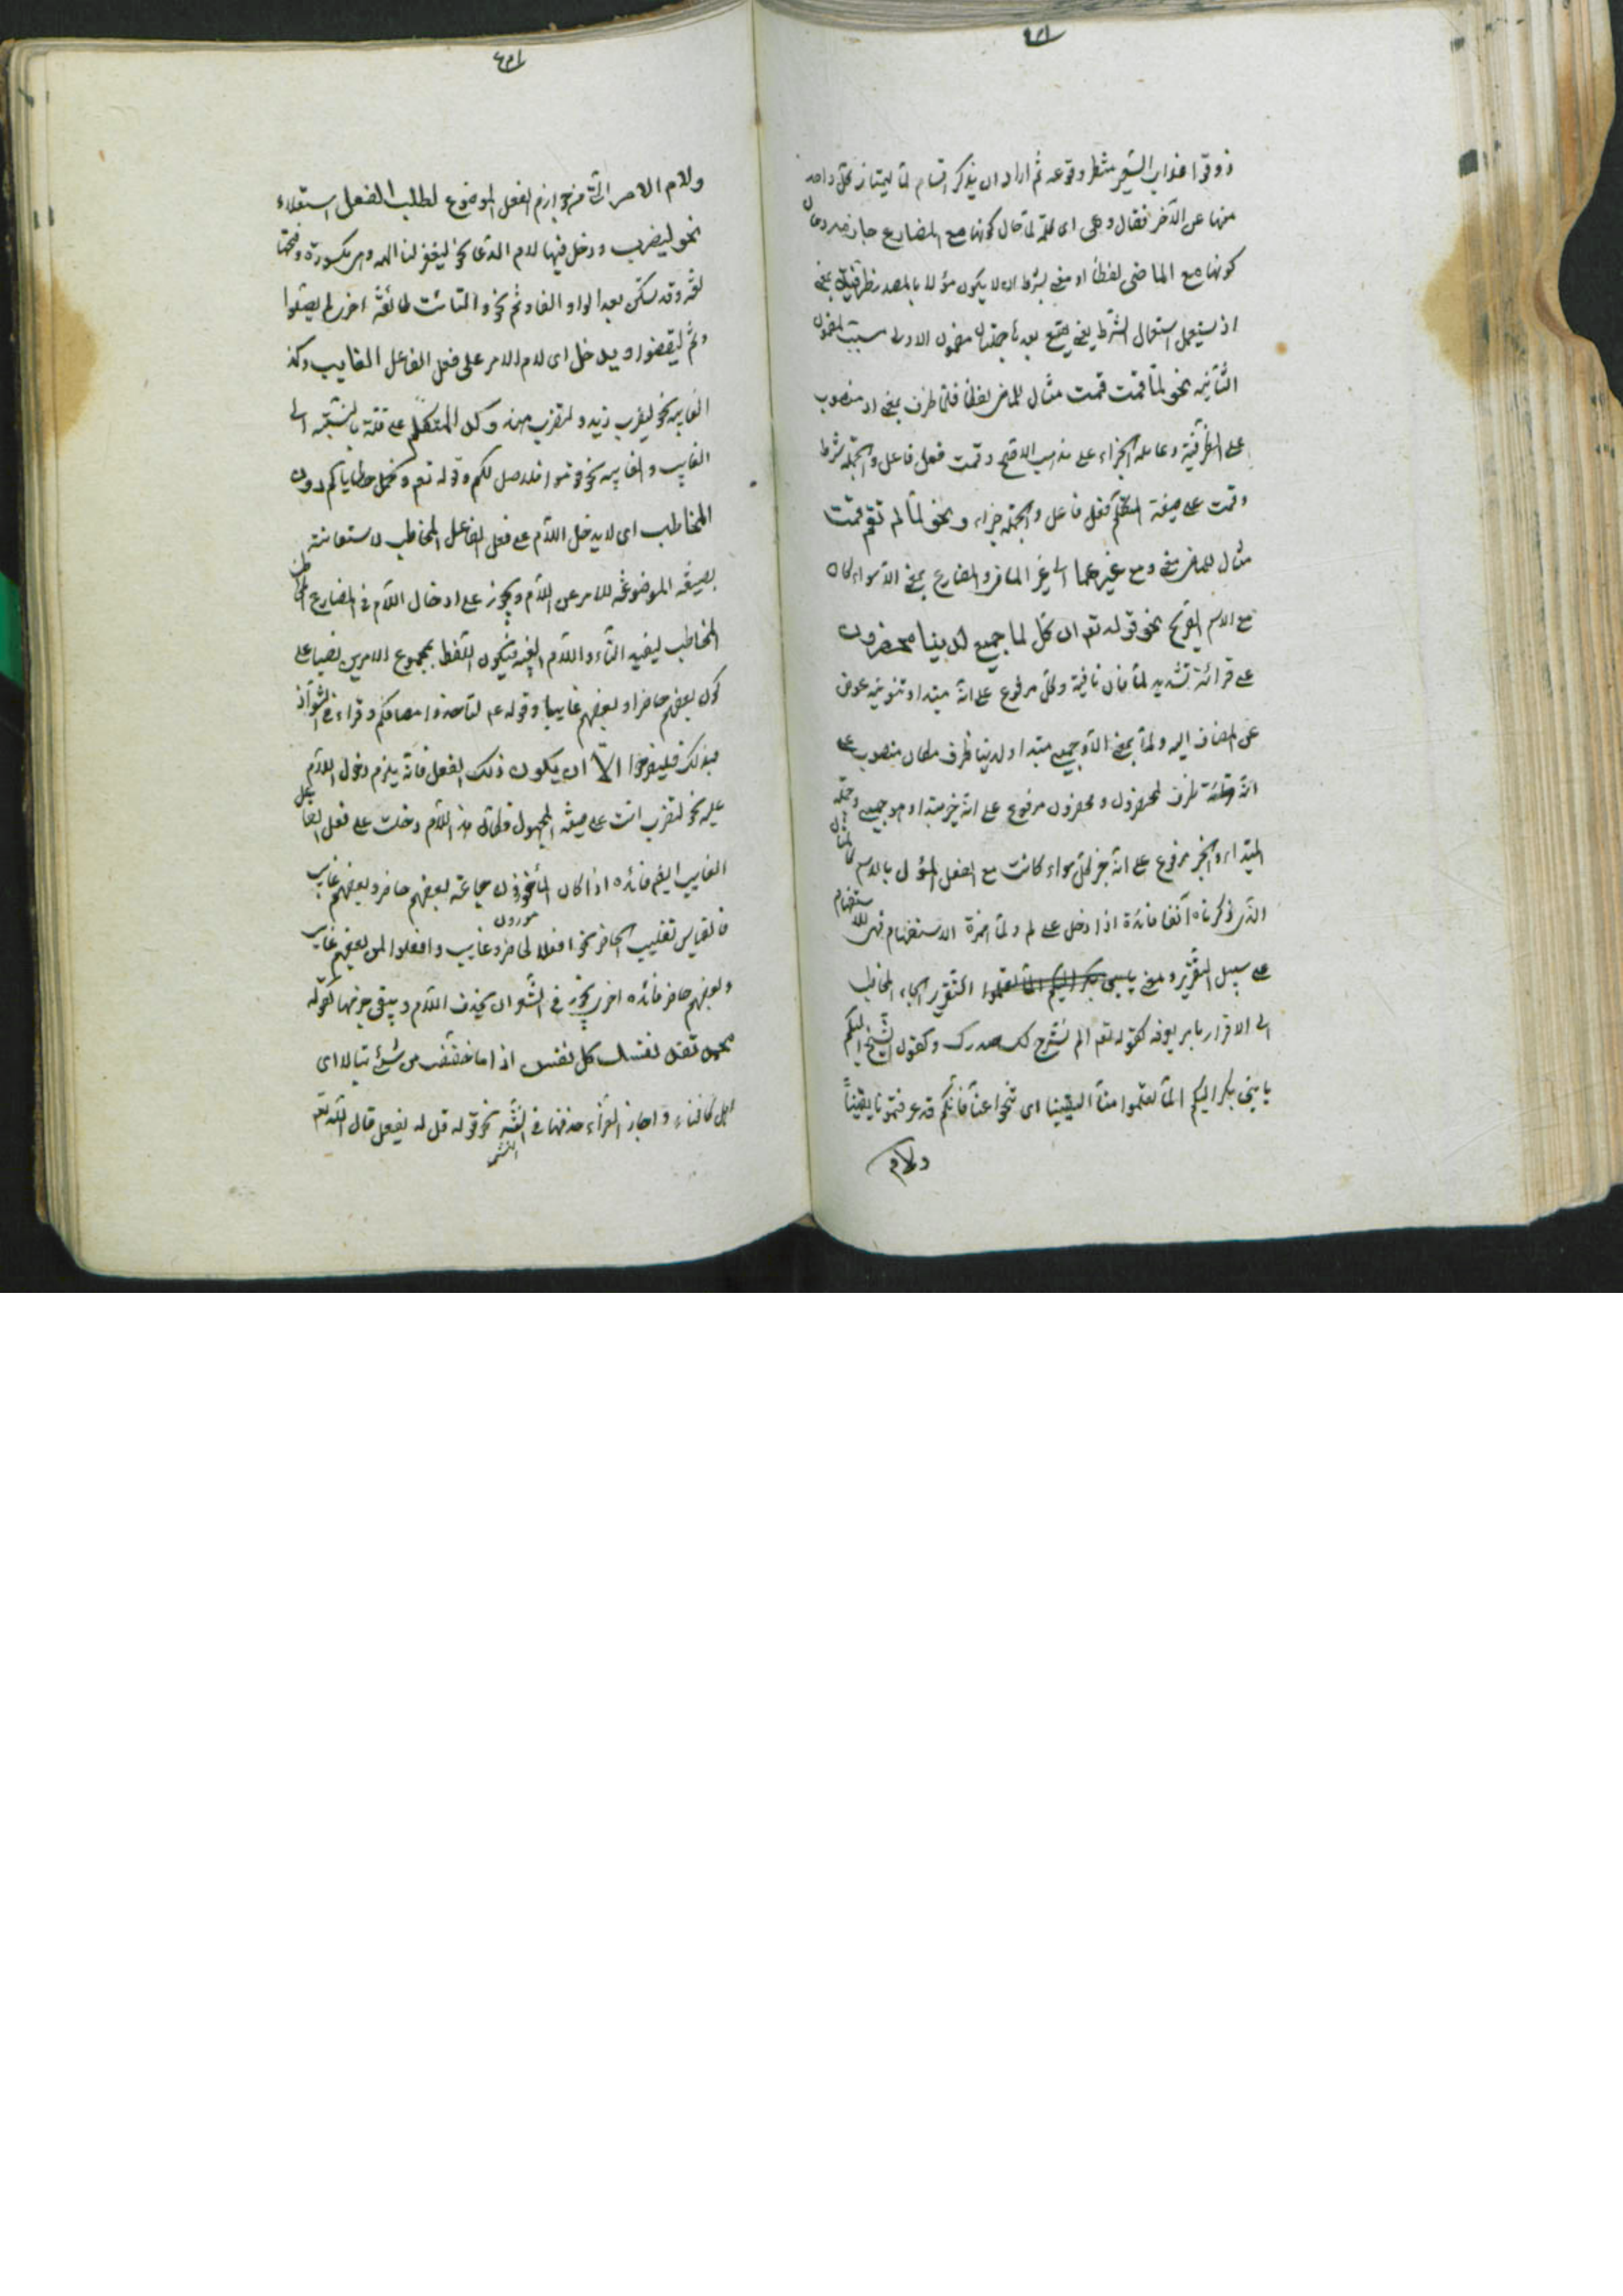 ذوقوا عذاب السعير منتظر وقوعه ثم اراد ان يذكر اقسام لما ليمتاز كل واحد
منها عن الآخر فقال وهى اى كلمة لما حال كونها مع المضارع جازمة وحال
كونها مع الماضى لفظا او معنى بشرط ان لا يكون مؤلا بالمصدر ظرفية بمعنى
اذ يستعمل استعمال الشرط يعنى يقع بعدها جملتان مضمون الاولى سبب لمضمون
الثانية نحو لما قمت قمت مثال للماضى لفظا فلما ظرف بمعنى اذ منصوب
على الظرفية وعامله الجزاء على مذهب الاصح وقمت فعل فاعل والجملة شرط
وقمت على صيغة المتكلم فعل فاعل والجملة جزاء ونحو لما لم تقم قمت
مثال للماضى معنى ومع غيرهما اى غير الماضى والمضارع بمعنى الا سواء كان
مع الاسم الصريح نحو قوله تع ان كل لما جميع لدينا محضرون
على قرائة تشديد لما فان نافية وكل مرفوع على انه مبتدا وتنوينه عوض
عن المضاف اليه ولما بمعنى الا وجميع مبتدا ولدينا ظرف مكان منصوب على
انه ظرف لمحضرون ومحضرون مرفوع على انه خبر مبتدا وهو جميع وجملة
المبتداء والخبر مرفوع على انه خبر لكل سواء كانت مع الفعل المؤل بالاسم كالمثال
الذى ذكرناه آنفا فائدة اذا دخل على لم ولما همزة الاستفهام فهى للاستفهام
على سبيل التقرير ومعنى التقرير الجاء المخاطب
الى الاقرار بامر يعرفه كقوله تعم الم نشرح لك صدرك وكقول الشيخ اليكم
يا بنى بكر اليكم الما تعلموا منا اليقينا اى تنحوا عنا فانكم قد عرفتمونا يقيناً
ولام
ولام الامر الثالث من جوازم الفعل الموضوع لطلب الفعل استعلاء
نحو ليضرب ودخل فيها لام الدعا نحو ليغفر لنا الله وهى مكسورة وفتحها
لغة وقد سكن بعد الواو والفاء وثم نحو ولتأت طائفة اخرى لم يصلوا
وثم ليقضوا ويدخل اى لام الامر على فعل الفاعل الغايب وكذا
الغايبة نحو ليضرب زيد ولتضرب هند وكل المتكلم على قلة بالنسبة الى
الغايب والغايبة نحو قوموا فلاصل لكم وقوله تعم ولنحمل خطاياكم دون
المخاطب اى لا يدخل اللام على فعل الفاعل المخاطب لاستغائنه
بصيغة الموضوعة للامر عن اللام ويجوز على ادخال اللام فى المضارع
المخاطب ليفيد التاء واللام الغيبة فيكون اللفظ بمجموع الامرين نصيا على
كون بعضهم حاضرا وبعضهم غايبا وقوله عم لتأخذوا مصافكم وقراءة فى الشواذ
فبذلك فليفرحوا الا ان يكون ذلك الفعل فانه يلزم دخول اللام
عليه نحو لتضرب انت على صيغة المجهول فكان هذا اللام دخلت على فعل الفاعل
الغايب ايضا فائدة اذا كان المأمورون جماعة بعضهم حاضر وبعضهم غايب
فالقياس تغليب الحاضر نحو افعلا لحاضر وغايب وافعلوا لمن بعضهم غايب
وبعضهم حاضر فائدة اخرى يجوز فى الشعر ان يحذف اللام ويبقى جزمها كقوله
محمد تفد نفسك كل نفس اذا ما خفت من شىء تبالا اى
واجاز الفراء حذفها فى النثر نحو قوله قل له يفعل قال الله تع
النثر